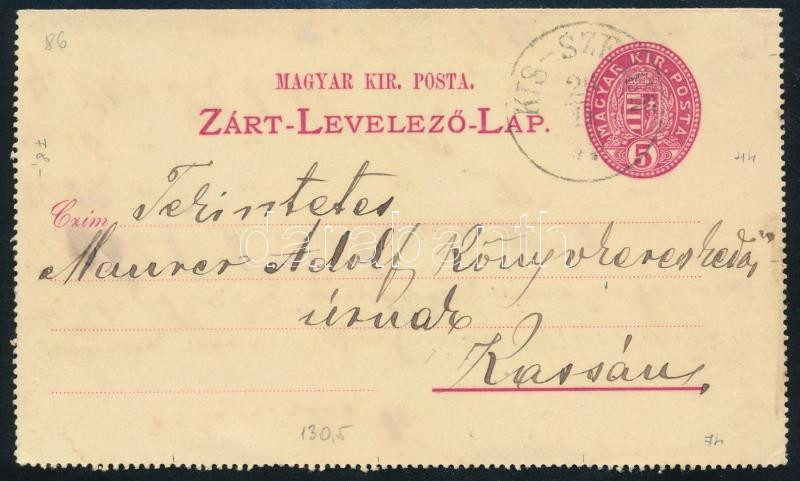 86
MAGYAR KIR. POSTA.
ZÁRT-LEVELEZŐ-LAP.
KIS-SZE
MAGYAR KIR. POSTA
5
78,-
44
Czim
Tekintetes
darabanth
Maurer Adolf Könyvkereskedő
úrnak
Kassán
130,5
74